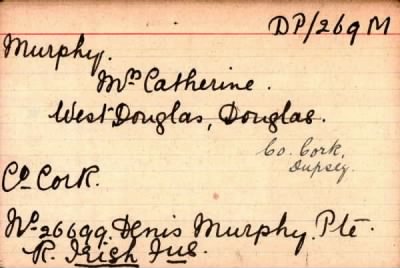 DP/269 M
Murphy.
Mrs Catherine.
West Douglas, Douglas.
Co. Cork.
Co Cork.
No 26699. Denis Murphy. Pte.
R. Irish Fus.